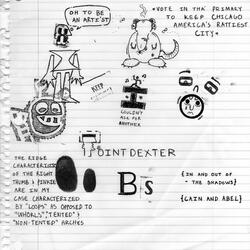 OH TO BE
AN ARTIST
*VOTE IN THE PRIMARY
TO KEEP CHICAGO
AMERICA'S RATTIEST
CITY*
COULDN'T
ASK FOR
ANOTHER
POINTDEXTER
THE RIDGE
CHARACTERISTICS
OF THE RIGHT
THUMB & PINKIE
ARE IN MY
CASE CHARACTERIZED
BY "LOOPS" AS OPPOSED TO
"WHORLS", "TENTED" &
"NON-TENTED" ARCHES
B's
{IN AND OUT OF
THE SHADOWS}
{CAIN AND ABEL}